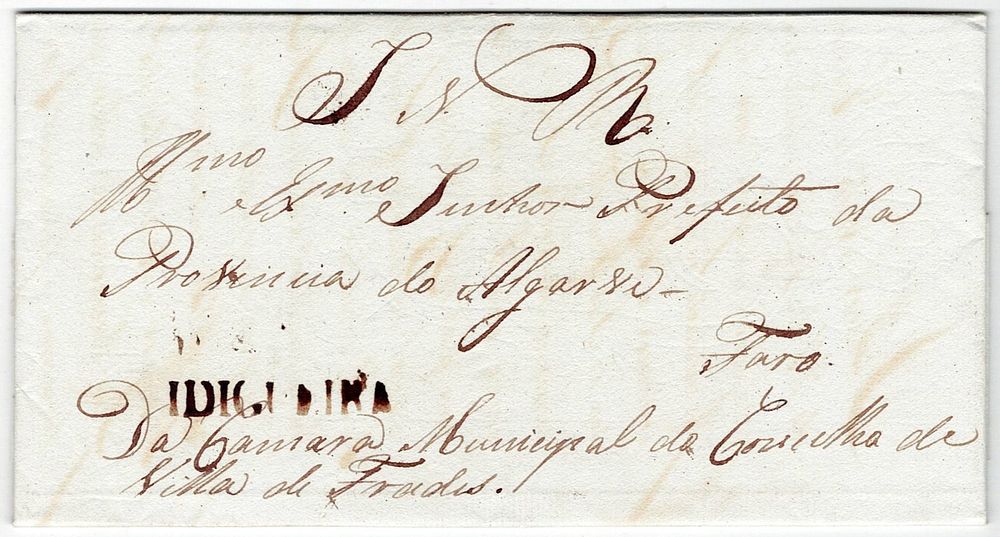 S. N. R.
Illmo e Exmo Senhor Prefeito da
Provincia do Algarve
Faro.
Da Camara Municipal do Concelho de
Villa de Frades.